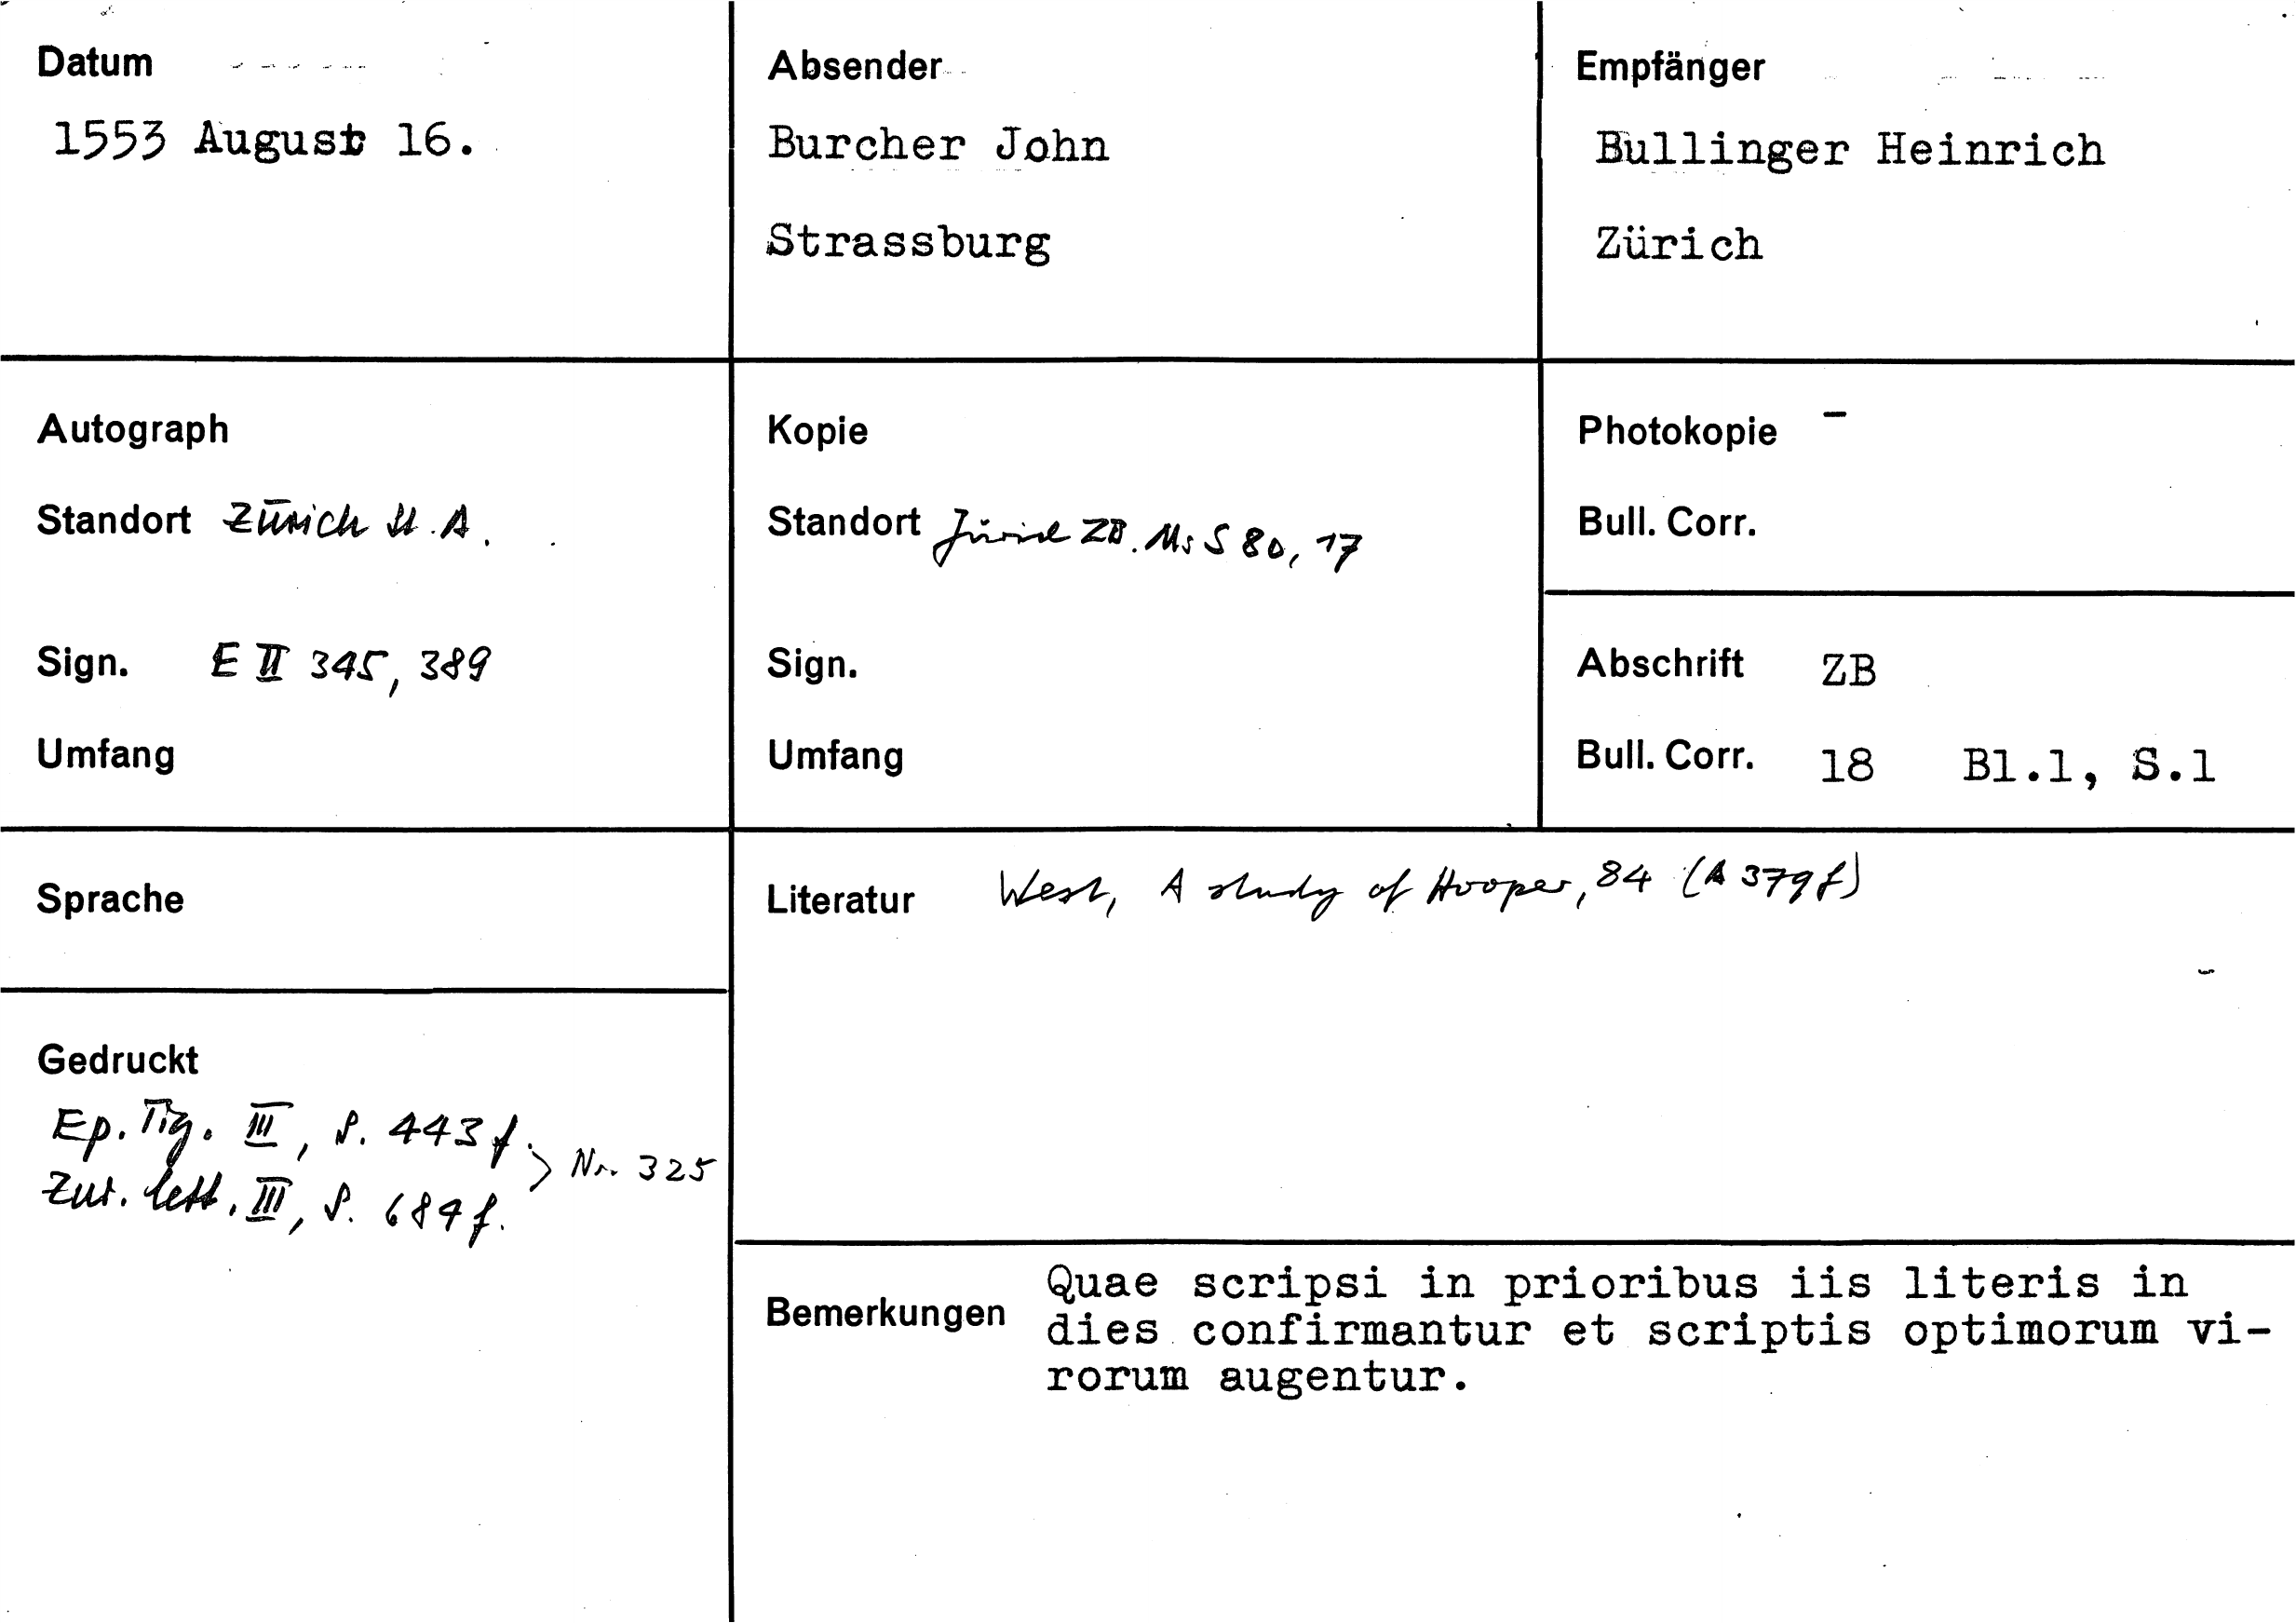 Datum
1553 August 16.
Absender
Burcher John
Strassburg
Empfänger
Bullinger Heinrich
Zürich
Autograph
Standort Zürich St. A.
Sign. E II 345, 389
Umfang
Kopie
Standort Zürich ZB. Ms S 80, 17
Sign.
Umfang
Photokopie –
Bull. Corr.
Abschrift ZB
Bull. Corr. 18 Bl.1, S.1
Sprache
Literatur West, A study of Hooper, 84 (A 379f)
Gedruckt
Ep. Tig. III, S. 443 f.
Zur. lett. III, S. 684 f.
> Nr. 325
Bemerkungen
Quae scripsi in prioribus iis literis in
dies confirmantur et scriptis optimorum vi-
rorum augentur.